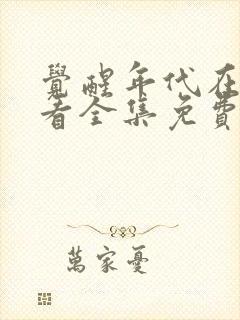 覺醒年代在
看全集免費
萬家憂